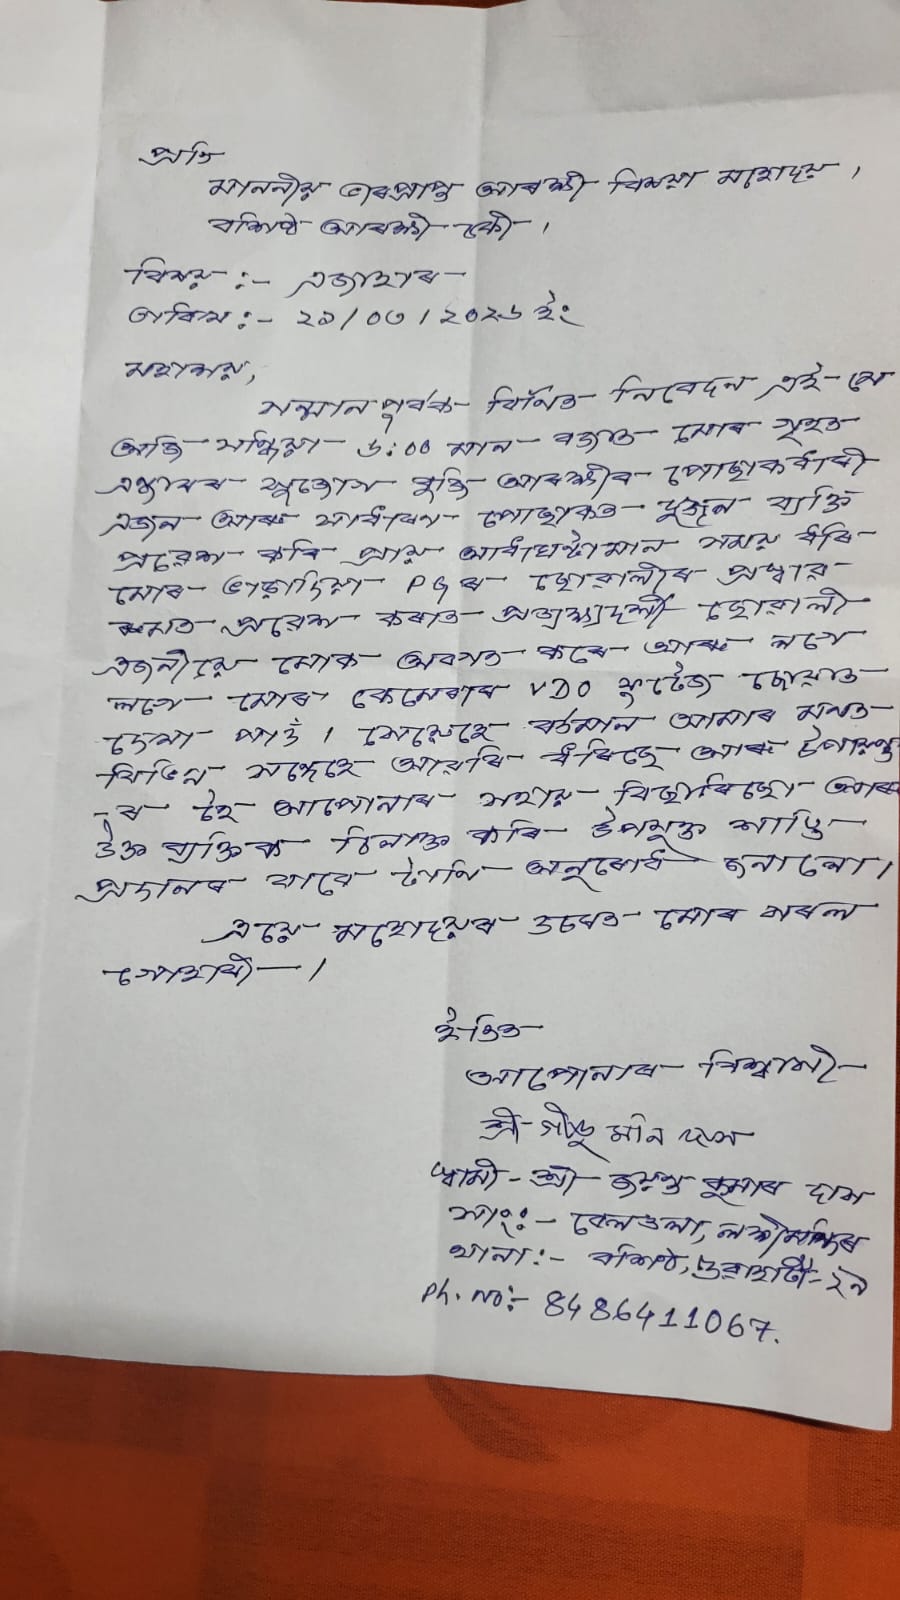 প্ৰতি
মাননীয় ভাৰপ্ৰাপ্ত আৰক্ষী বিষয়া মহোদয়।
বশিষ্ঠ আৰক্ষী চকী।
বিষয় :- এজাহাৰ
তাৰিখ :- ২৯/০৩/২০২৬ ইং
মহাশয়,
সন্মান পূৰ্বক বিনীত নিবেদন এই যে
আজি সন্ধিয়া ৬:০০ মান বজাত মোৰ গৃহত
এন্ধাৰৰ সুযোগ বুজি আৰক্ষীৰ পোছাকধাৰী
এজন আৰু সাধাৰণ পোছাকত দুজন ব্যক্তি
প্ৰৱেশ কৰি প্ৰায় আধাঘণ্টামান সময় ধৰি
মোৰ ভাড়াদিয়া PG ৰ ছোৱালীৰ প্ৰস্ৰাৱ-
ৰুমত প্ৰৱেশ কৰাত প্ৰত্যক্ষ্যদৰ্শী ছোৱালী
এজনীয়ে মোক অবগত কৰে আৰু লগে
লগে মোৰ কেমেৰাৰ VDO ফুটেজ চোৱাত
দেখা পাওঁ। সেয়েহে বৰ্তমান আমাৰ মনত
বিভিন্ন সন্দেহে আৱৰি ধৰিছে আৰু উপায়ন্ত
-ৰ হৈ আপোনাৰ সহায় বিচাৰিছো আৰু
উক্ত ব্যক্তিক চিনাক্ত কৰি উপযুক্ত শাস্তি
প্ৰদানৰ বাবে টানি অনুৰোধ জনালো।
এয়ে মহোদয়ৰ ওচৰত মোৰ সৰল
গোহাৰী।
ইতিত
আপোনাৰ বিশ্বাসী
শ্ৰী দাস
স্বামী - শ্ৰী জয়ন্ত কুমাৰ দাস
সাং:- বেলতলা, লক্ষীমন্দিৰ
থানা :- বশিষ্ঠ, গুৱাহাটী-২৯
Ph. No:- 8486411067.